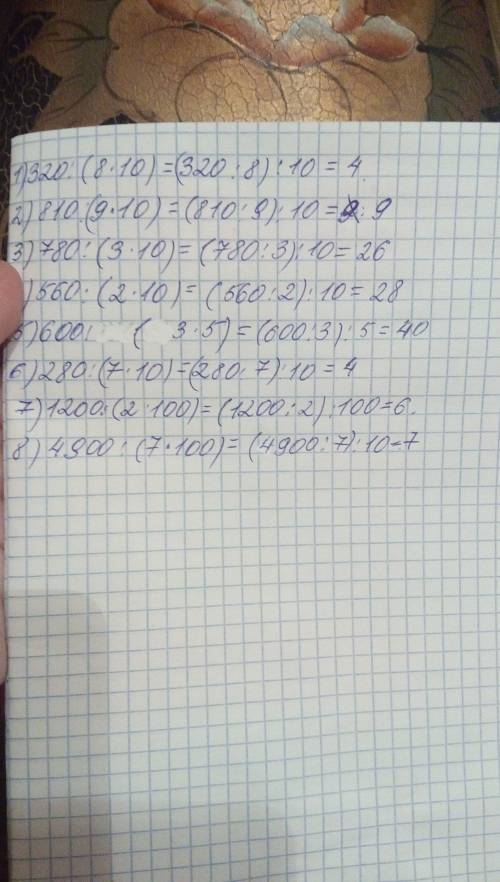 1) 320 : (8 · 10) = (320 : 8) : 10 = 4.
2) 810 : (9 · 10) = (810 : 9) : 10 = 9
3) 780 : (3 · 10) = (780 : 3) : 10 = 26
) 560 : (2 · 10) = (560 : 2) : 10 = 28
5) 600 : ( 3 · 5) = (600 : 3) : 5 = 40
6) 280 : (7 · 10) = (280 : 7) : 10 = 4
7) 1200 : (2 · 100) = (1200 : 2) : 100 = 6.
8) 4900 : (7 · 100) = (4900 : 7) : 10 = 7